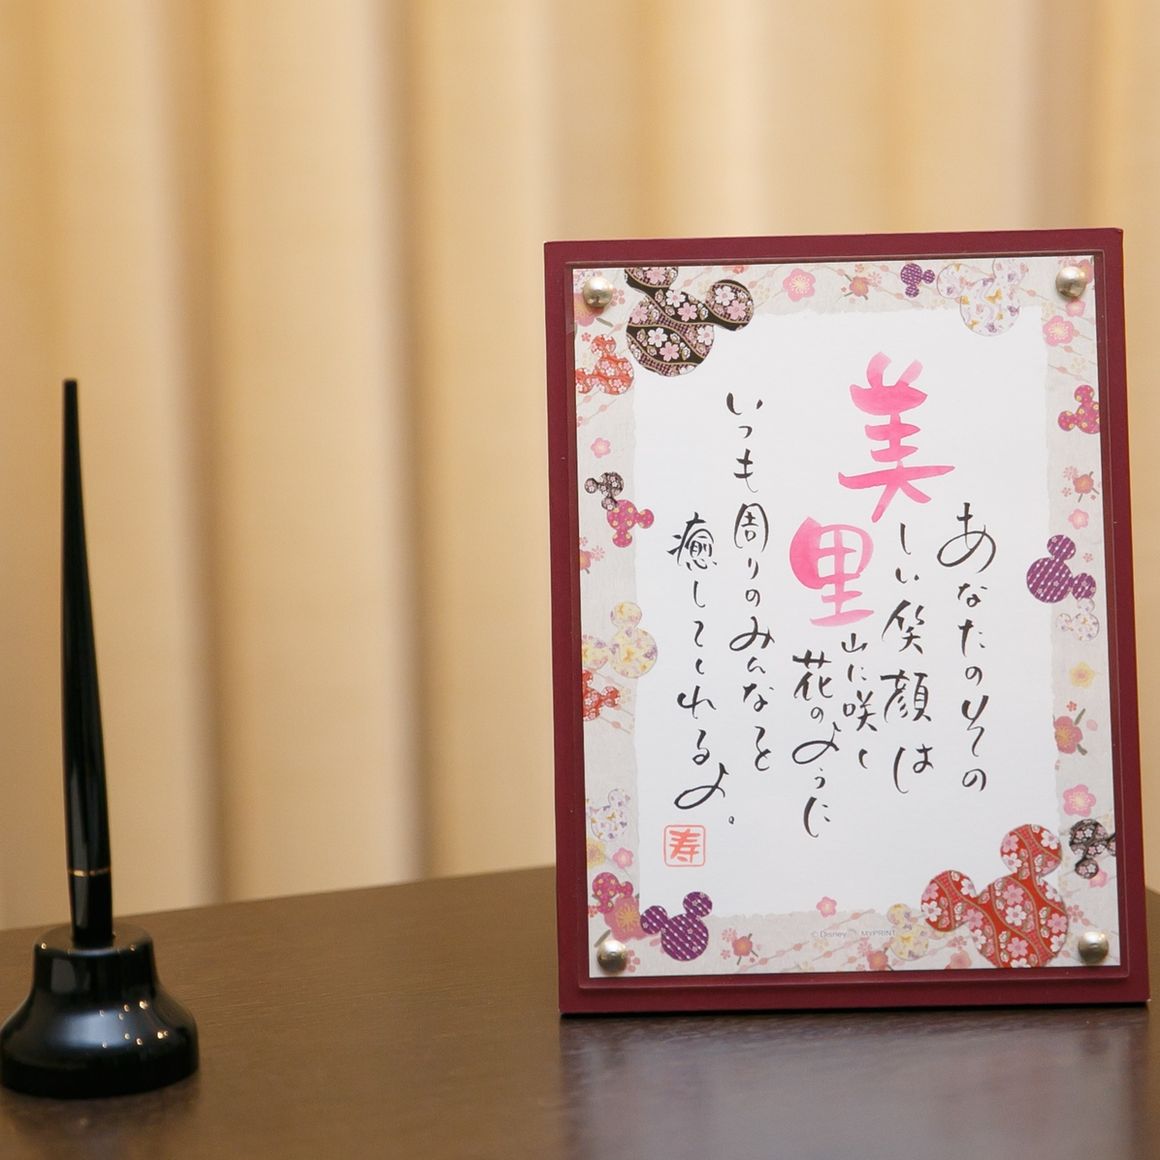 あなたのその
美しい笑顔は
里山に咲く
花のように
いつも周りのみんなを
癒してくれるよ。
寿
© Disney MYPRINT